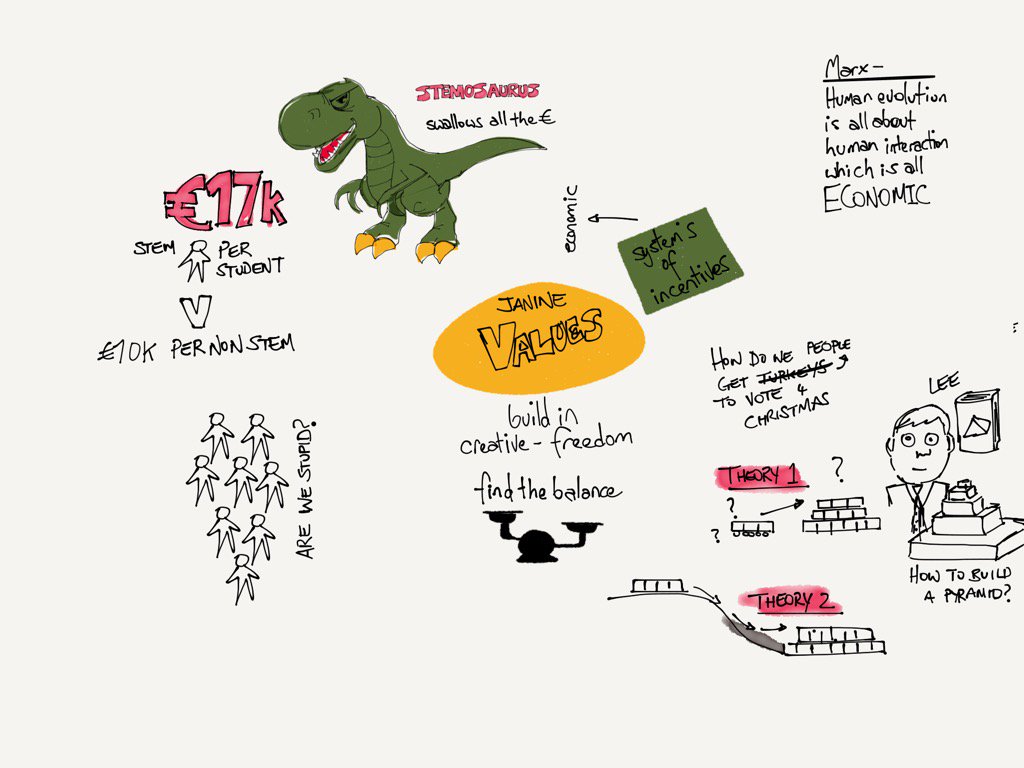 STEMOSAURUS
swallows all the €
€17k
STEM PER
STUDENT
V
€10K PER NON STEM
ARE WE STUPID?
economic
system's
of
incentives
JANINE
VALUES
build in
creative - freedom
find the balance
Marx -
Human evolution
is all about
human interaction
which is all
ECONOMIC
HOW DO WE PEOPLE
GET TURKEYS
TO VOTE 4
CHRISTMAS
LEE
THEORY 1
?
?
?
THEORY 2
HOW TO BUILD
A PYRAMID?